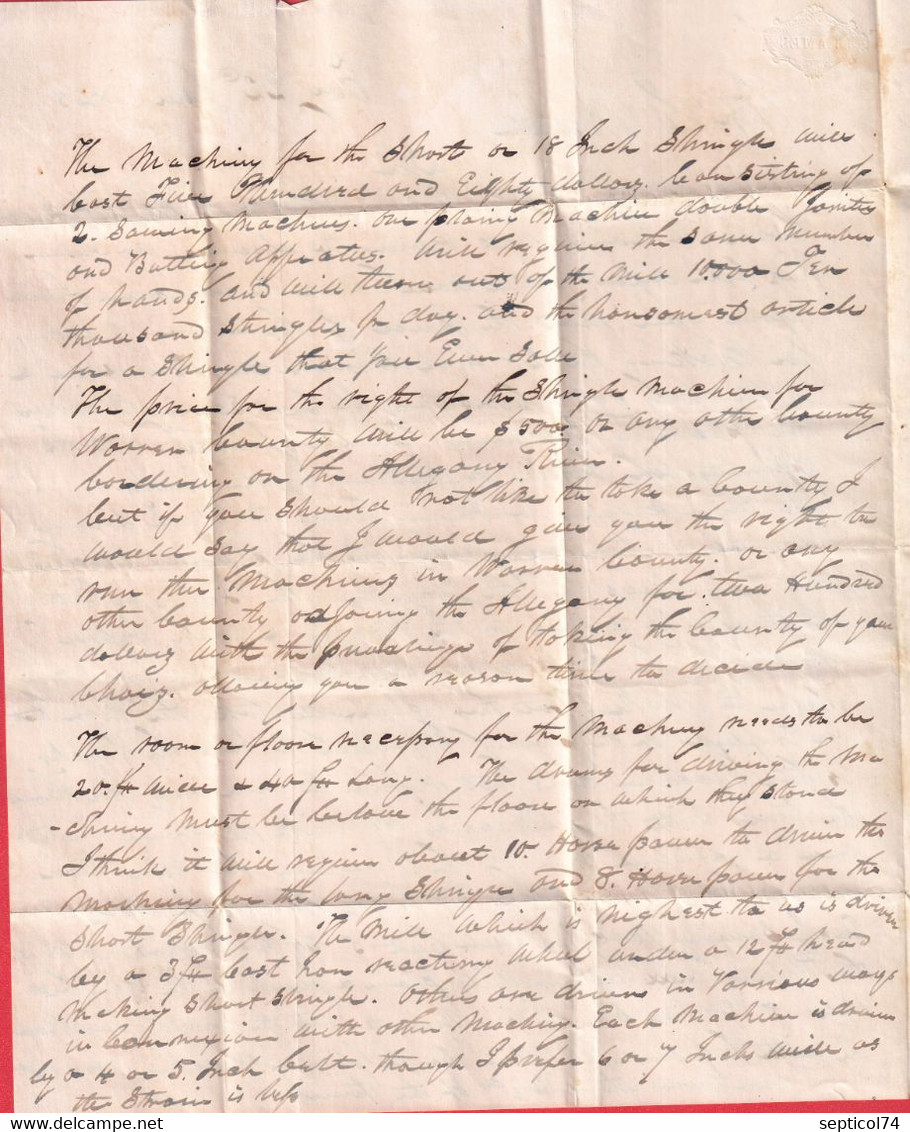 The Machiny for the Short or 18 Inch Shingle will
cost Five Hundred and Eighty dollars. Consisting of
2. Sawing Machines. One plaing Machine double Jointer
and Butting Appeatus. Will require the same number
of hands. and will throw out of the mill 10.000 Ten
thousand Shingles pr day. and the hansomest article
for a Shingle that you Ever Saw
The price for the right of the Shingle Machine for
Warren County will be $500 or any othe County
bordering on the Allegany River.
but if you should not like to take a County I
would say that I would give you the right to
run the Machiney in Warren County. or any
other County adjoing the Allegany for. two Hundred
dollars with the of taking the County of your
Choig. allowing you a reason time to decide
The room or floor necessary for the Machiney needs to be
20. ft wide & 40 ft Long. The drums for driving the Ma
-chinery must be below the floor on which they stand
I think it will require about 10. Horse power to drive the
Machiney for the long Shingle and 8. Horse power for the
Short Shingle. The Mill which is nighest to us is driven
by a 3 ft Cast Iron reacting wheel under a 12 ft head
making Short Shingle. Others are driven in various ways
in connexion with other Machiny. Each Machine is driven
by a 4 or 5. Inch belt. though I prefer 6 or 7 Inch wide as
the Strain is less
septicol74
delcampe.net